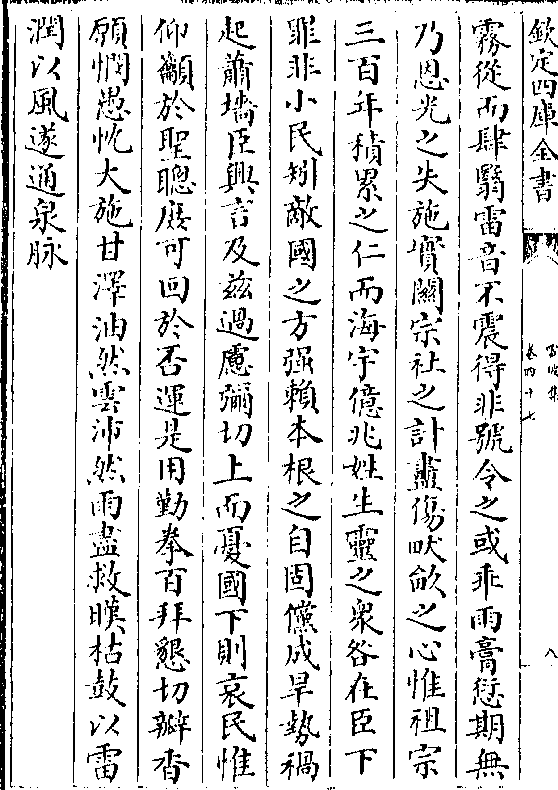 欽定四庫全書
卷四十七
八
霧從而肆翳雷音不震得非號令之或乖雨膏愆期無
乃恩光之失施實關宗社之計盡傷畎畝之心惟祖宗
三百年積累之仁而海宇億兆姓生靈之衆咎在臣下
罪非小民矧敵國之方强賴本根之自固儻成旱勢禍
起蕭墻臣興言及兹過慮彌切上而憂國下則哀民惟
仰籲於聖聰庻可回於否運是用勤拳百拜懇切瓣香
願憫愚忱大施甘澤油然雲沛然雨盡救暵枯鼓以雷
潤以風遂通泉脉